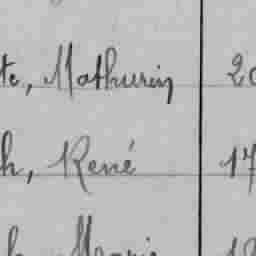 te, Mathurin 20
h, René 17
h Marie 18